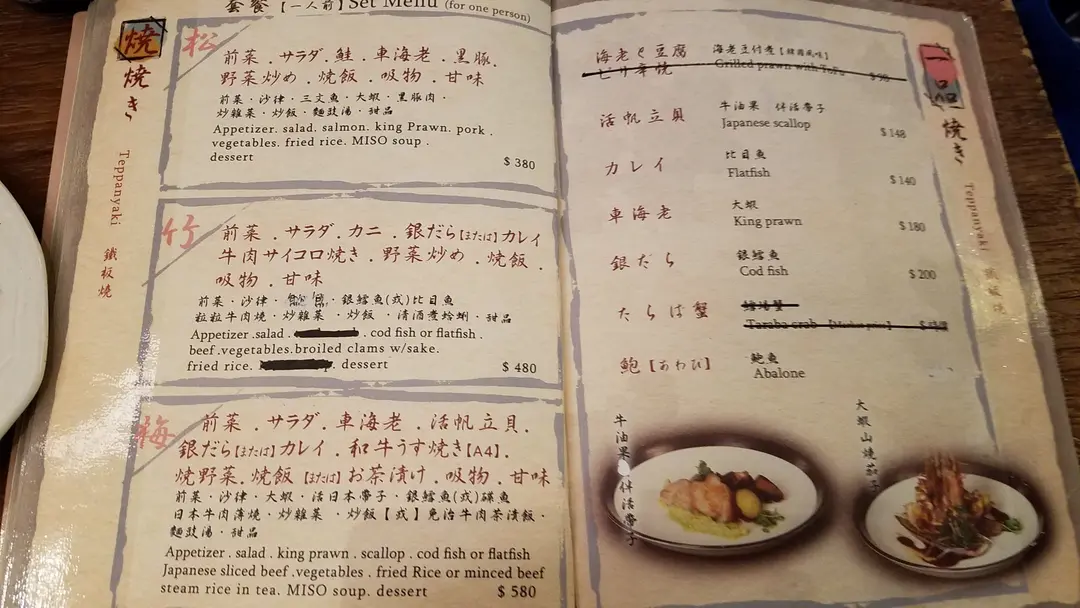 套餐【一人前】Set Menu (for one person)
焼
焼き
Teppanyaki
鐵板燒
松
前菜．サラダ．鮭．車海老．黒豚．
野菜炒め．焼飯．吸物．甘味
前菜・沙律・三文魚・大蝦・黑豚肉・
炒雜菜・炒飯・麵豉湯・甜品
Appetizer. salad. salmon. king Prawn. pork .
vegetables. fried rice. MISO soup .
dessert
$ 380
竹
前菜．サラダ．カニ．銀だら【または】カレイ
牛肉サイコロ焼き．野菜炒め．焼飯．
吸物．甘味
前菜・沙律・銀鱈魚(或)比目魚
粒粒牛肉燒・炒雜菜・炒飯・清酒煮蛤蜊・甜品
Appetizer .salad . . cod fish or flatfish .
beef .vegetables.broiled clams w/sake.
fried rice. . dessert
$ 480
梅
前菜．サラダ．車海老．活帆立貝．
銀だら【または】カレイ．和牛うす焼き【A4】．
焼野菜．焼飯【または】お茶漬け．吸物．甘味
前菜・沙律・大蝦・活日本帶子・銀鱈魚(或)碟魚
日本牛肉薄燒・炒雜菜・炒飯【或】免治牛肉茶漬飯・
麵豉湯・甜品
Appetizer . salad . king prawn . scallop . cod fish or flatfish
Japanese sliced beef .vegetables . fried Rice or minced beef
steam rice in tea. MISO soup. dessert
$ 580
一品
焼き
Teppanyaki
鐵板燒
海老と豆腐
ピリ辛焼
海老豆付煮【韓國風味】
Grilled prawn with Tofu
$ 98
活帆立貝
牛油果 伴活帶子
Japanese scallop
$ 148
カレイ
比目魚
Flatfish
$ 140
車海老
大蝦
King prawn
$ 180
銀だら
銀鱈魚
Cod fish
$ 200
たらば蟹
鱈場蟹
Taraba crab 【Market price】
鮑【あわび】
鮑魚
Abalone
牛油果伴活帶子
大蝦山燒茄子